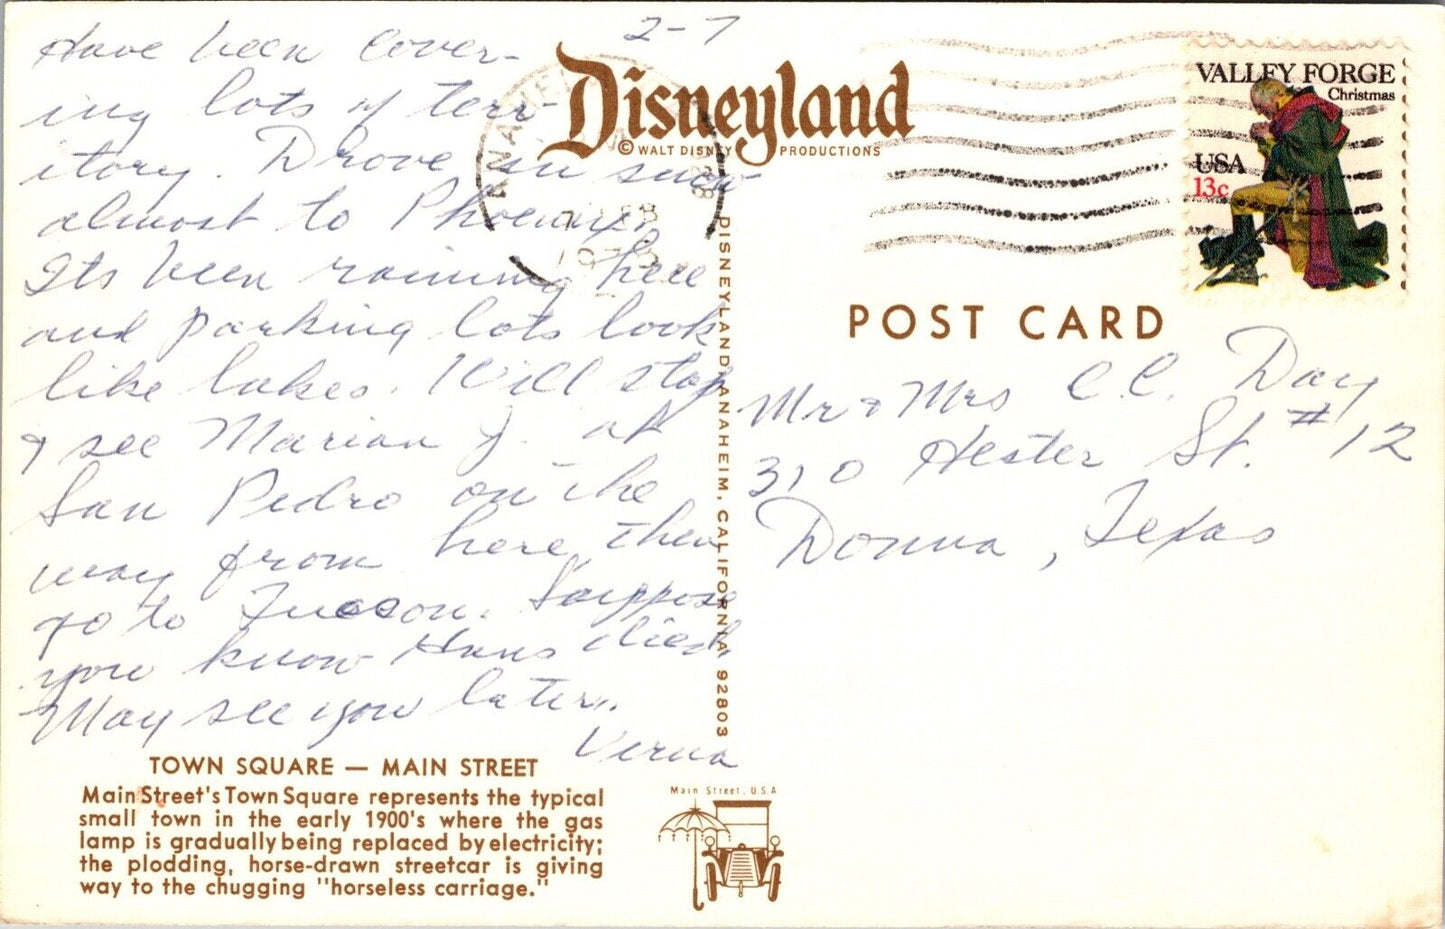 2-7
Have been cover-
ing lots of terr-
itory. Drove in snow
almost to Phoenix.
Its been raining here
and parking lots look
like lakes. Will stop
& see Marian J. at
San Pedro on the
way from here, then
go to Tucson. Suppose
you know Hans died.
May see you later.
Verna
TOWN SQUARE — MAIN STREET
Main Street's Town Square represents the typical
small town in the early 1900's where the gas
lamp is gradually being replaced by electricity;
the plodding, horse-drawn streetcar is giving
way to the chugging "horseless carriage."
Disneyland
© WALT DISNEY PRODUCTIONS
DISNEYLAND, ANAHEIM, CALIFORNIA 92803
Main Street, U.S.A
VALLEY FORGE
Christmas
USA
13c
POST CARD
Mr & Mrs C.C. Day
310 Hester St. #12
Donna, Texas